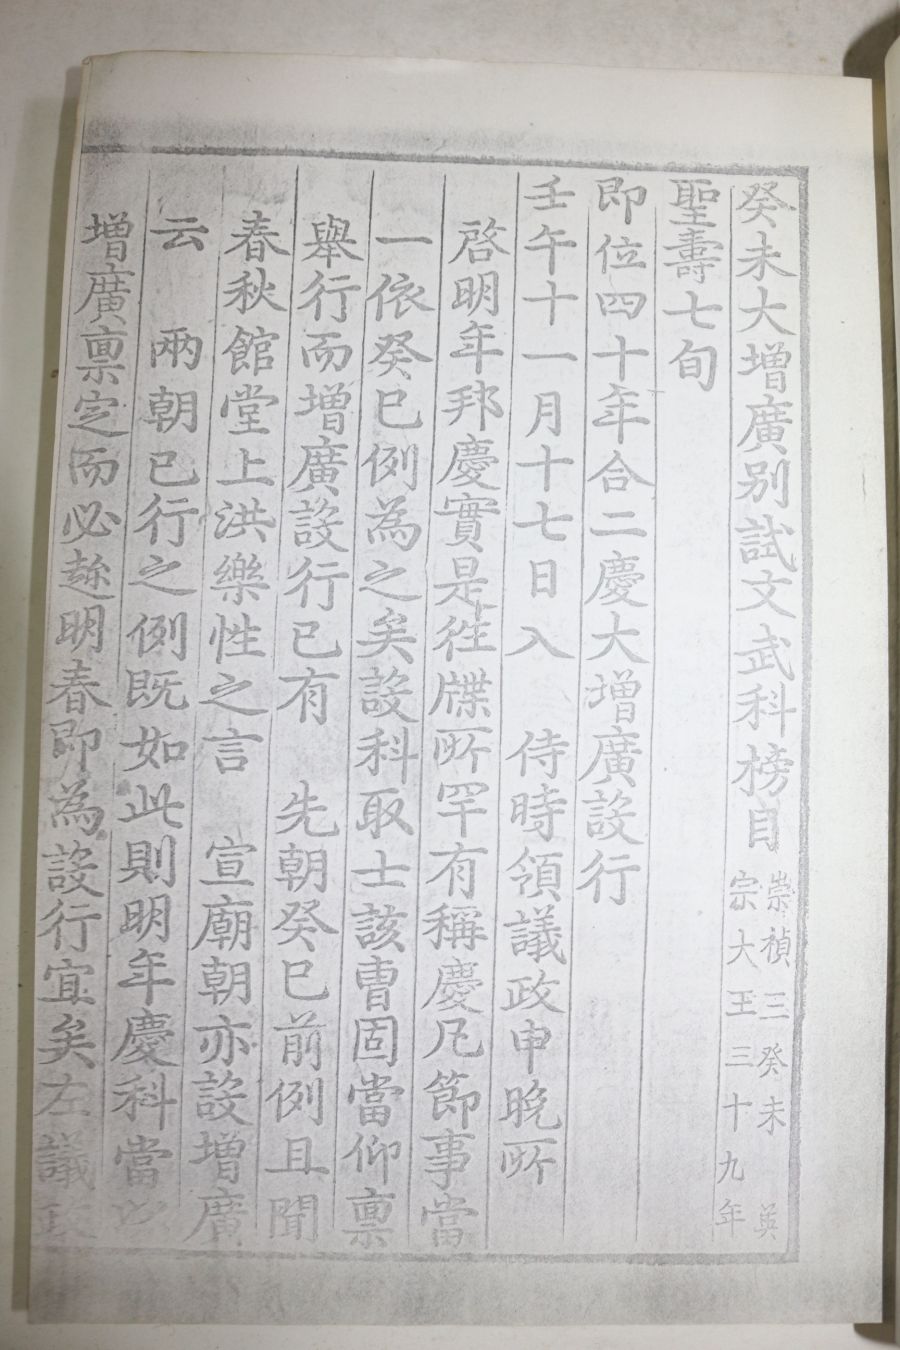 癸未大增廣別試文武科榜目 崇禎三癸未 英
宗大王三十九年
聖壽七旬
即位四十年合二慶大增廣設行
壬午十一月十七日入 侍時領議政申晩所
啓明年邦慶實是往牒所罕有稱慶凡節事當
一依癸巳例為之矣設科取士該曹固當仰稟
舉行而增廣設行已有 先朝癸巳前例且聞
春秋館堂上洪樂性之言 宣廟朝亦設增廣
云 兩朝已行之例既如此則明年慶科當以
增廣稟定而必趂明春即為設行宜矣左議政